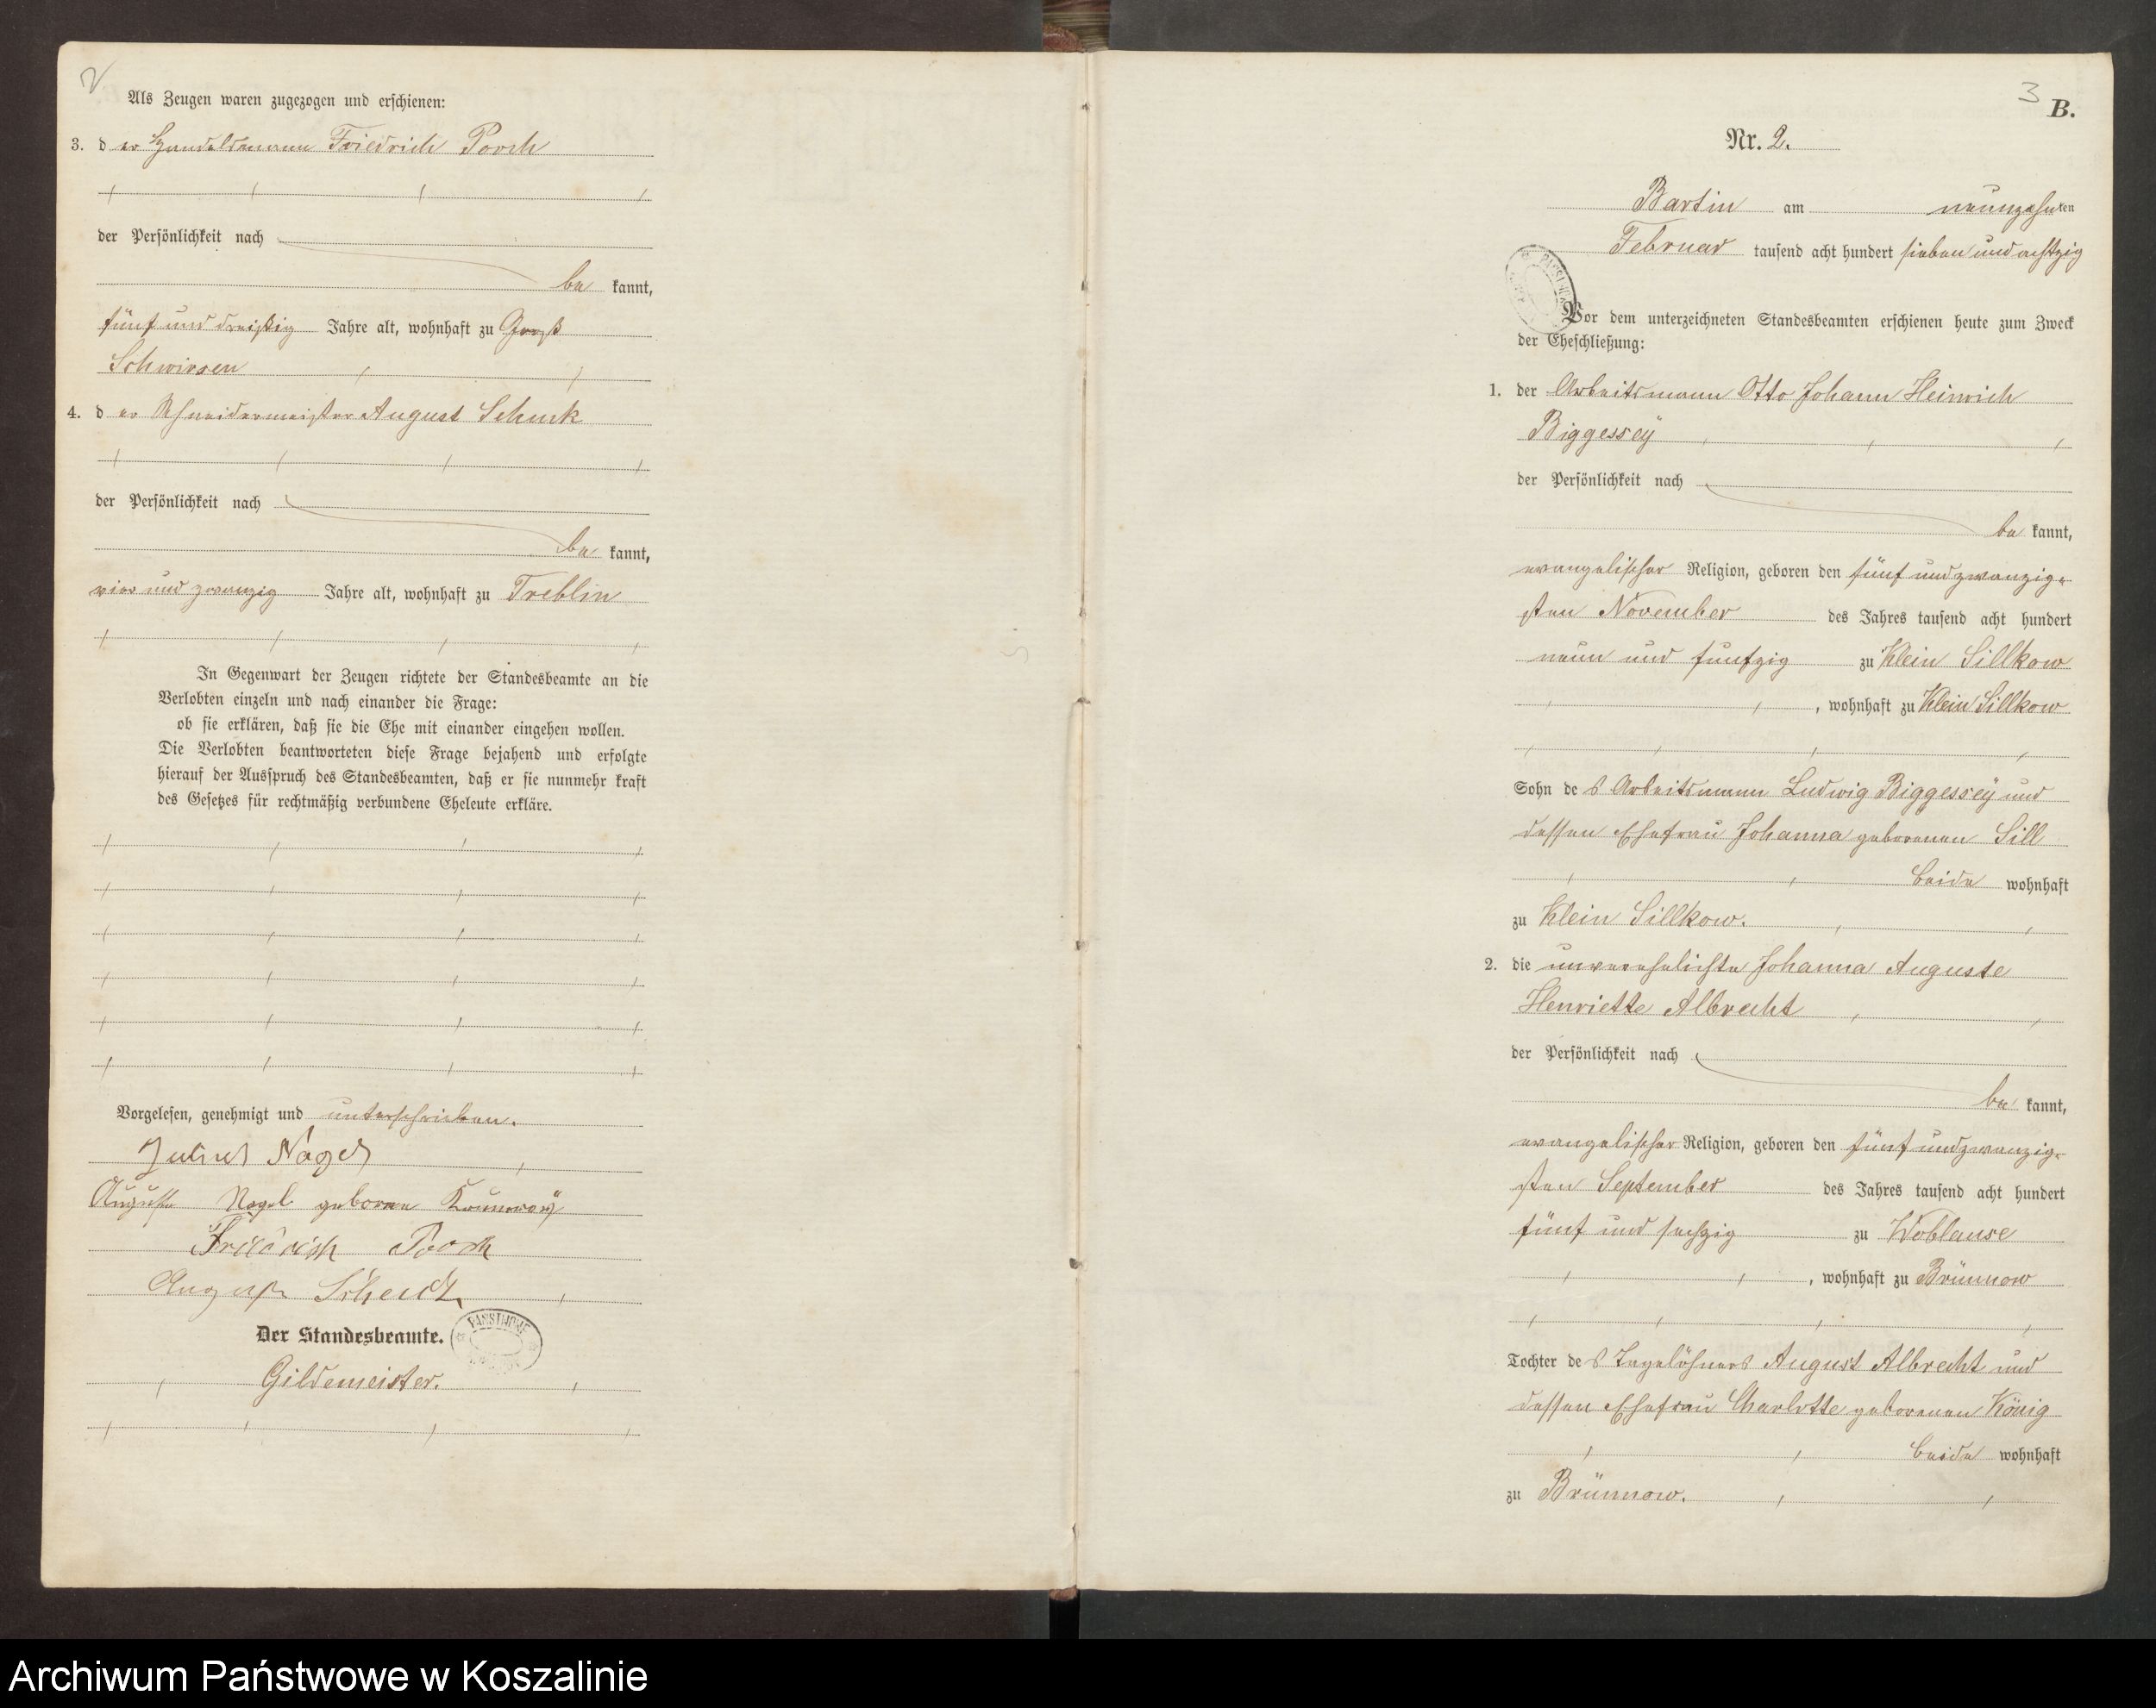 Als Zeugen waren zugezogen und erschienen:
3. der Handelsmann Friedrich Poosch
der Persönlichkeit nach
be kannt,
fünf und dreißig Jahre alt, wohnhaft zu Groß
Schwirsen
4. der Schneidermeister August Schuck
der Persönlichkeit nach
be kannt,
vier und zwanzig Jahre alt, wohnhaft zu Treblin
In Gegenwart der Zeugen richtete der Standesbeamte an die
Verlobten einzeln und nach einander die Frage:
ob sie erklären, daß sie die Ehe mit einander eingehen wollen.
Die Verlobten beantworteten diese Frage bejahend und erfolgte
hierauf der Ausspruch des Standesbeamten, daß er sie nunmehr kraft
des Gesetzes für rechtmäßig verbundene Eheleute erkläre.
Vorgelesen, genehmigt und unterschrieben.
Julius Nagel
Auguste Nagel geborne
Friedrich Poosch
August
Der Standesbeamte.
Gildemeister.
3
B.
Nr. 2.
Bartin am neunzehnten
Februar tausend acht hundert sieben und achtzig
Vor dem unterzeichneten Standesbeamten erschienen heute zum Zweck
der Eheschließung:
1. der Arbeitsmann Otto Johann Heinrich
Biggesseÿ
der Persönlichkeit nach
be kannt,
evangelischer Religion, geboren den fünf und zwanzig-
sten November des Jahres tausend acht hundert
neun und funfzig zu Klein Sillkow
, wohnhaft zu Klein Sillkow
Sohn des Arbeitsmann Ludwig Biggesseÿ und
dessen Ehefrau Johanna geborenen Sill
beide wohnhaft
zu Klein Sillkow.
2. die unverehelichte Johanna Auguste
Henriette Albrecht
der Persönlichkeit nach
be kannt,
evangelischer Religion, geboren den fünf und zwanzig-
sten September des Jahres tausend acht hundert
fünf und sechzig zu Woblanse
, wohnhaft zu Brünnow
Tochter des Tagelöhners August Albrecht und
dessen Ehefrau Charlotte geborenen König
beide wohnhaft
zu Brünnow.
Archiwum Państwowe w Koszalinie